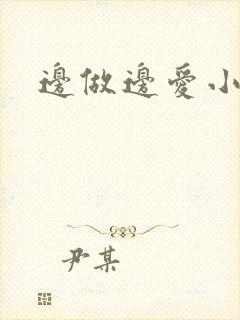 邊做邊愛小
尹某